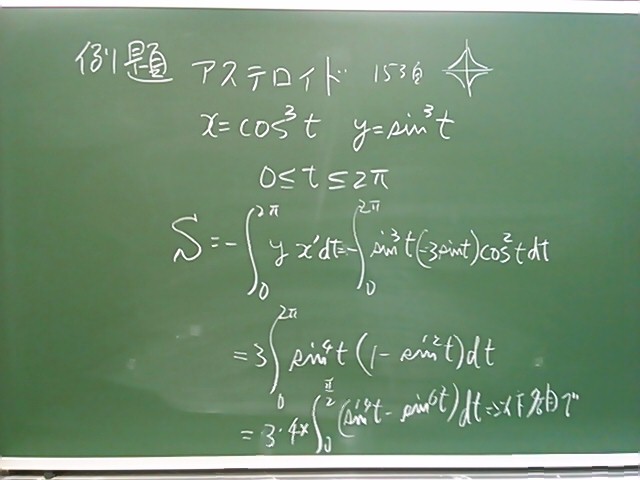 例題 アステロイド 153頁
x=cos³t y=sin³t
0≤t≤2π
S=-∫₀^{2π} y x'dt=-∫₀^{2π} sin³t(-3sint)cos²t dt
=3∫₀^{2π} sin⁴t(1-sin²t)dt
=3·4×∫₀^{π/2}(sin⁴t-sin⁶t)dt⇒以下各自で